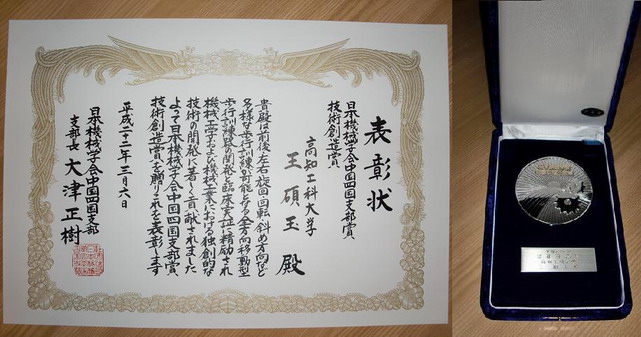 表彰状
日本機械学会中国四国支部賞
技術創造賞
高知工科大学
王碩玉 殿
貴殿は前後、左右、旋回、回転、斜め方向など
多様な歩行訓練が可能となる全方向移動型
歩行訓練器の開発と臨床実証に精励され
機械工学および機械工業における独創的な
技術の開発に著しく貢献されました
よって日本機械学会中国四国支部賞
技術創造賞を贈りこれを表彰します
平成二十二年三月六日
日本機械学会中国四国支部
支部長 大津正樹